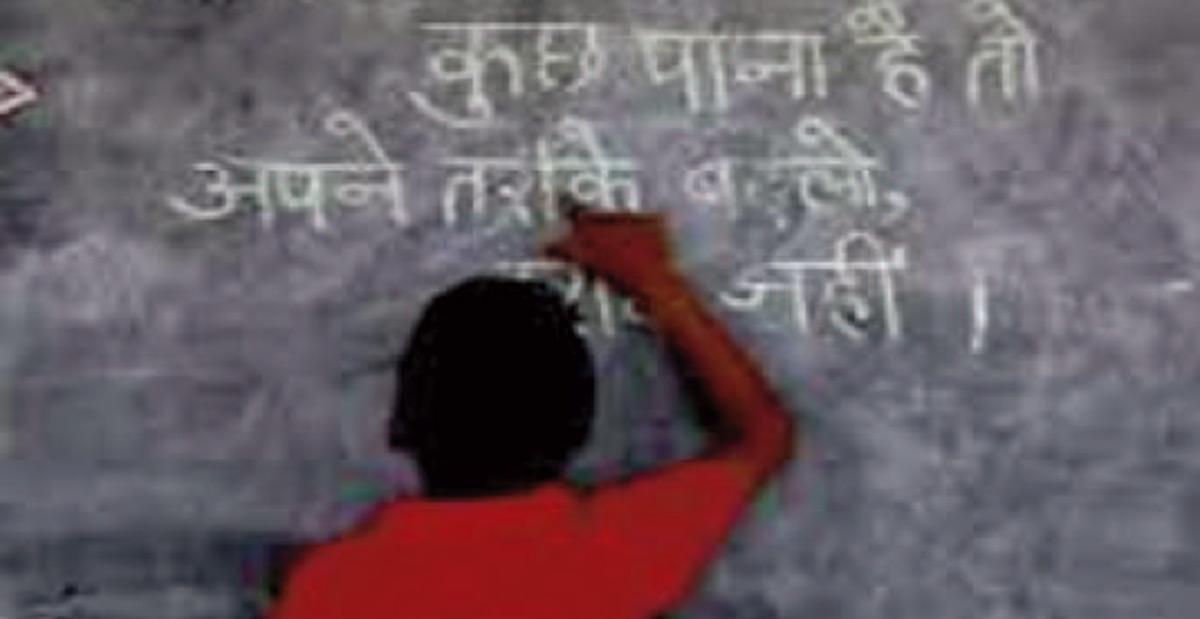 कुछ पाना है तो
अपने तरीके बदलो,
नहीं ।